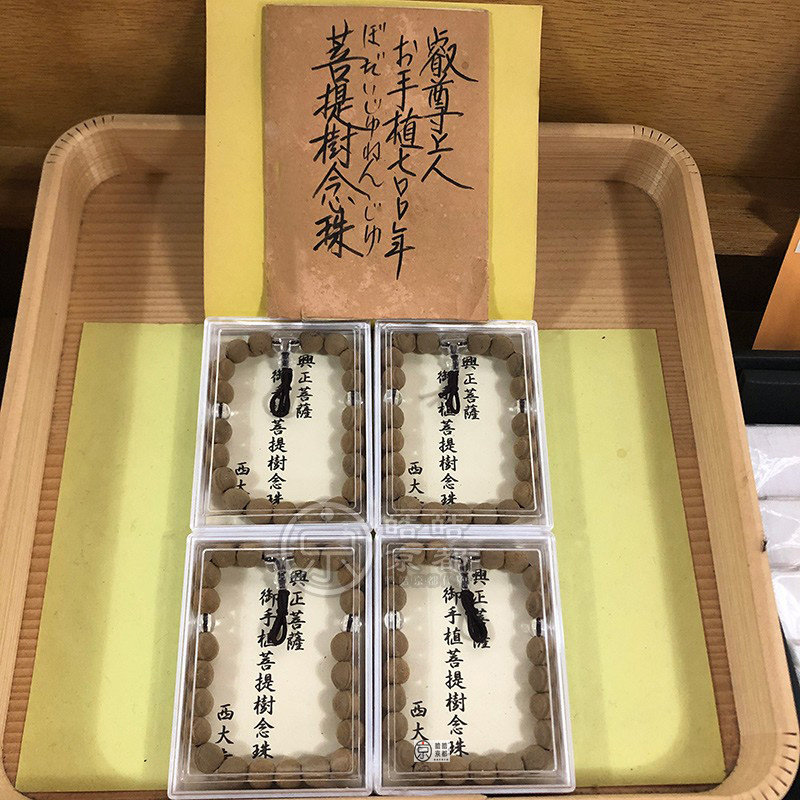 叡尊上人
お手植七〇〇年
ぼだいじゅねんじゅ
菩提樹念珠
興正菩薩
御手植菩提樹念珠
西大
興正菩薩
御手植菩提樹念珠
西大
興正菩薩
御手植菩提樹念珠
西大
興正菩薩
御手植菩提樹念珠
西大
皓皓
京都
京
皓皓
京都
京